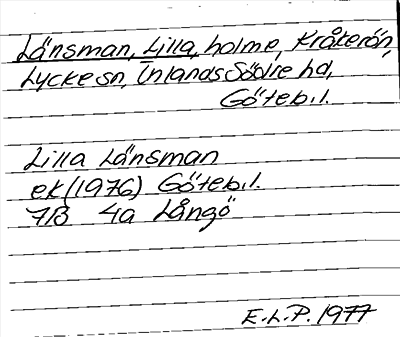 Länsman, Lilla, holme, Kråkerön,
Lycke sn, Inlands Södre hd,
Göteb.l.
Lilla Länsman
ek (1976) Göteb.l.
7B 4a Långö
E.L.P. 1977